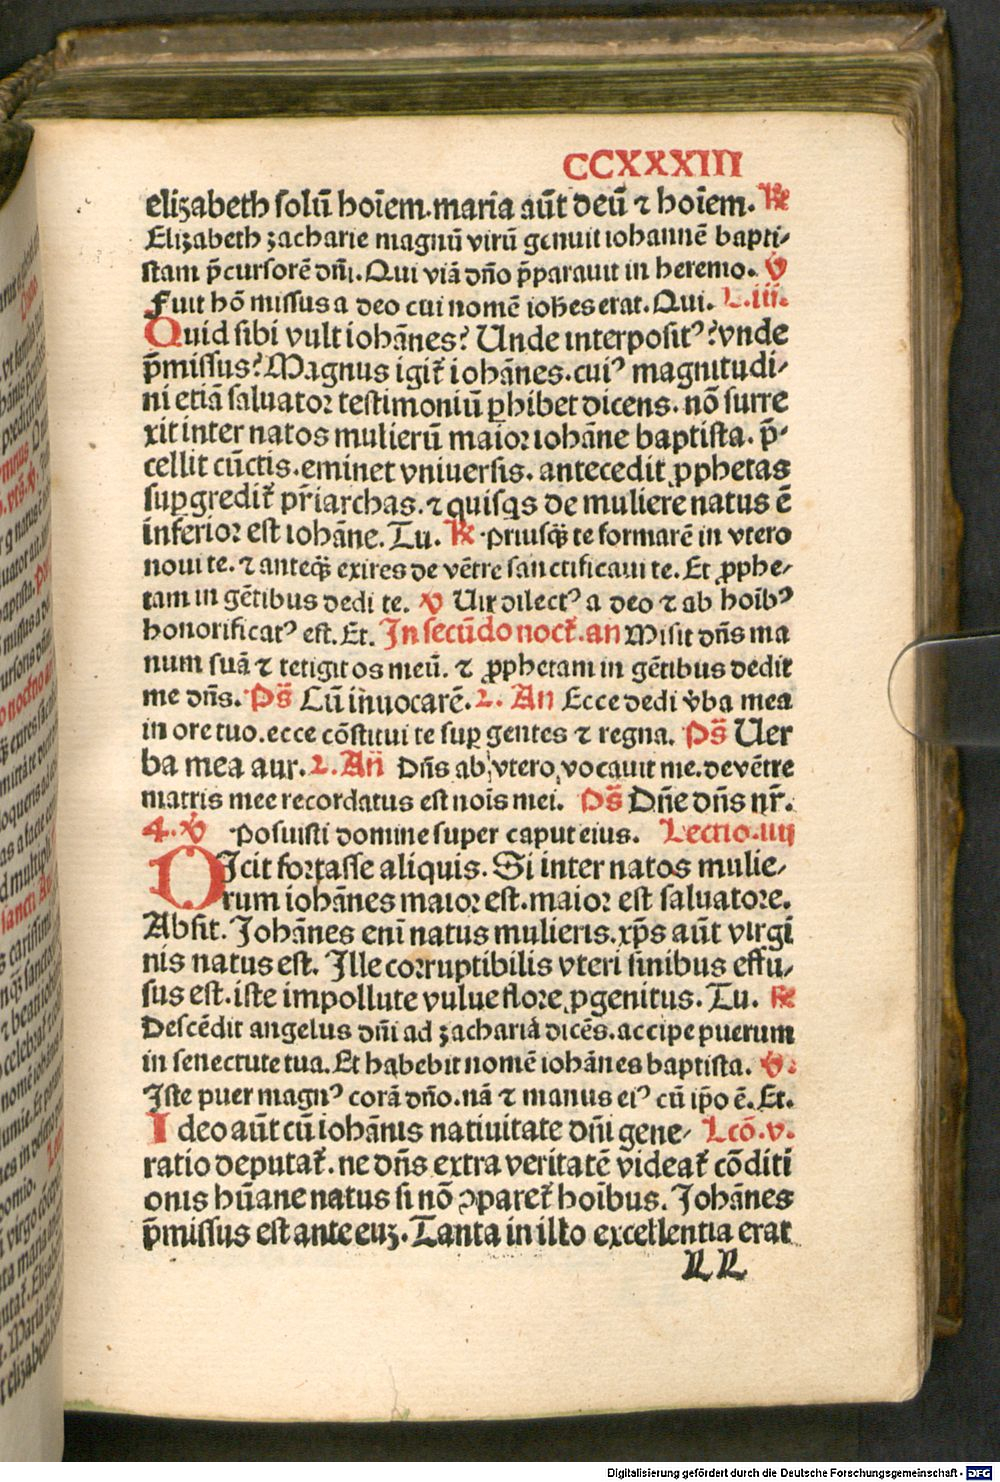 CCXXXIII
elizabeth solū hoīem.maria aūt deū ⁊ hoīem. ℟
Elizabeth zacharie magnū virū genuit iohannē bapti-
stam p̄cursorē dn̄i. Qui viā dn̄o p̄parauit in heremo. ℣
Fuit hō missus a deo cui nomē ioh̄es erat. Qui. L.iij.
Quid sibi vult iohānes? Unde interposit⁹? vnde
p̄missus? Magnus igit᷑ iohānes. cui⁹ magnitudi-
ni etiā saluator testimoniū ꝑhibet dicens. nō surre
xit inter natos mulierū maior iohāne baptista. p̄-
cellit cūctis. eminet vniuersis. antecedit ꝓphetas
suꝑgredit᷑ pr̄iarchas. ⁊ quisqs de muliere natus ē
inferior est iohāne. Tu. ℟ Priusqꝫ te formarē in vtero
noui te. ⁊ anteqꝫ exires de vētre sanctificaui te. Et ꝓphe-
tam in gētibus dedi te. ℣ Uir dilect⁹ a deo ⁊ ab hoīb⁹
honorificat⁹ est. Et. In secūdo noct᷑. an Misit dn̄s ma
num suā ⁊ tetigit os meū. ⁊ ꝓphetam in gētibus dedit
me dn̄s. Ps̄ Cū inuocarē. 2. An Ecce dedi v̄ba mea
in ore tuo. ecce cōstitui te suꝑ gentes ⁊ regna. Ps̄ Uer
ba mea aur. 2. An̄ Dn̄s ab vtero vocauit me. de vētre
matris mee recordatus est nois mei. Ps̄ Dn̄e dn̄s nr̄.
4. ℣ Posuisti domine super caput eius. Lectio.iiij
Dicit fortasse aliquis. Si inter natos mulie-
rum iohānes maior est. maior est saluatore.
Absit. Johānes enī natus mulieris. xp̄s aūt virgi
nis natus est. Ille corruptibilis vteri sinibus effu-
sus est. iste impollute vulue flore ꝓgenitus. Tu. ℟
Descēdit angelus dn̄i ad zachariā dicēs. accipe puerum
in senectute tua. Et habebit nomē iohānes baptista. ℣.
Iste puer magn⁹ corā dn̄o. nā ⁊ manus ei⁹ cū ip̄o ē. Et.
Ideo aūt cū iohānis natiuitate dn̄i gene- Lcō.v.
ratio deputat᷑. ne dn̄s extra veritatē videat᷑ cōditi
onis hūane natus si nō ꝯparet᷑ hoībus. Johānes
p̄missus est ante euꝫ. Tanta in illo excellentia erat
RR
Digitalisierung gefördert durch die Deutsche Forschungsgemeinschaft - DFG